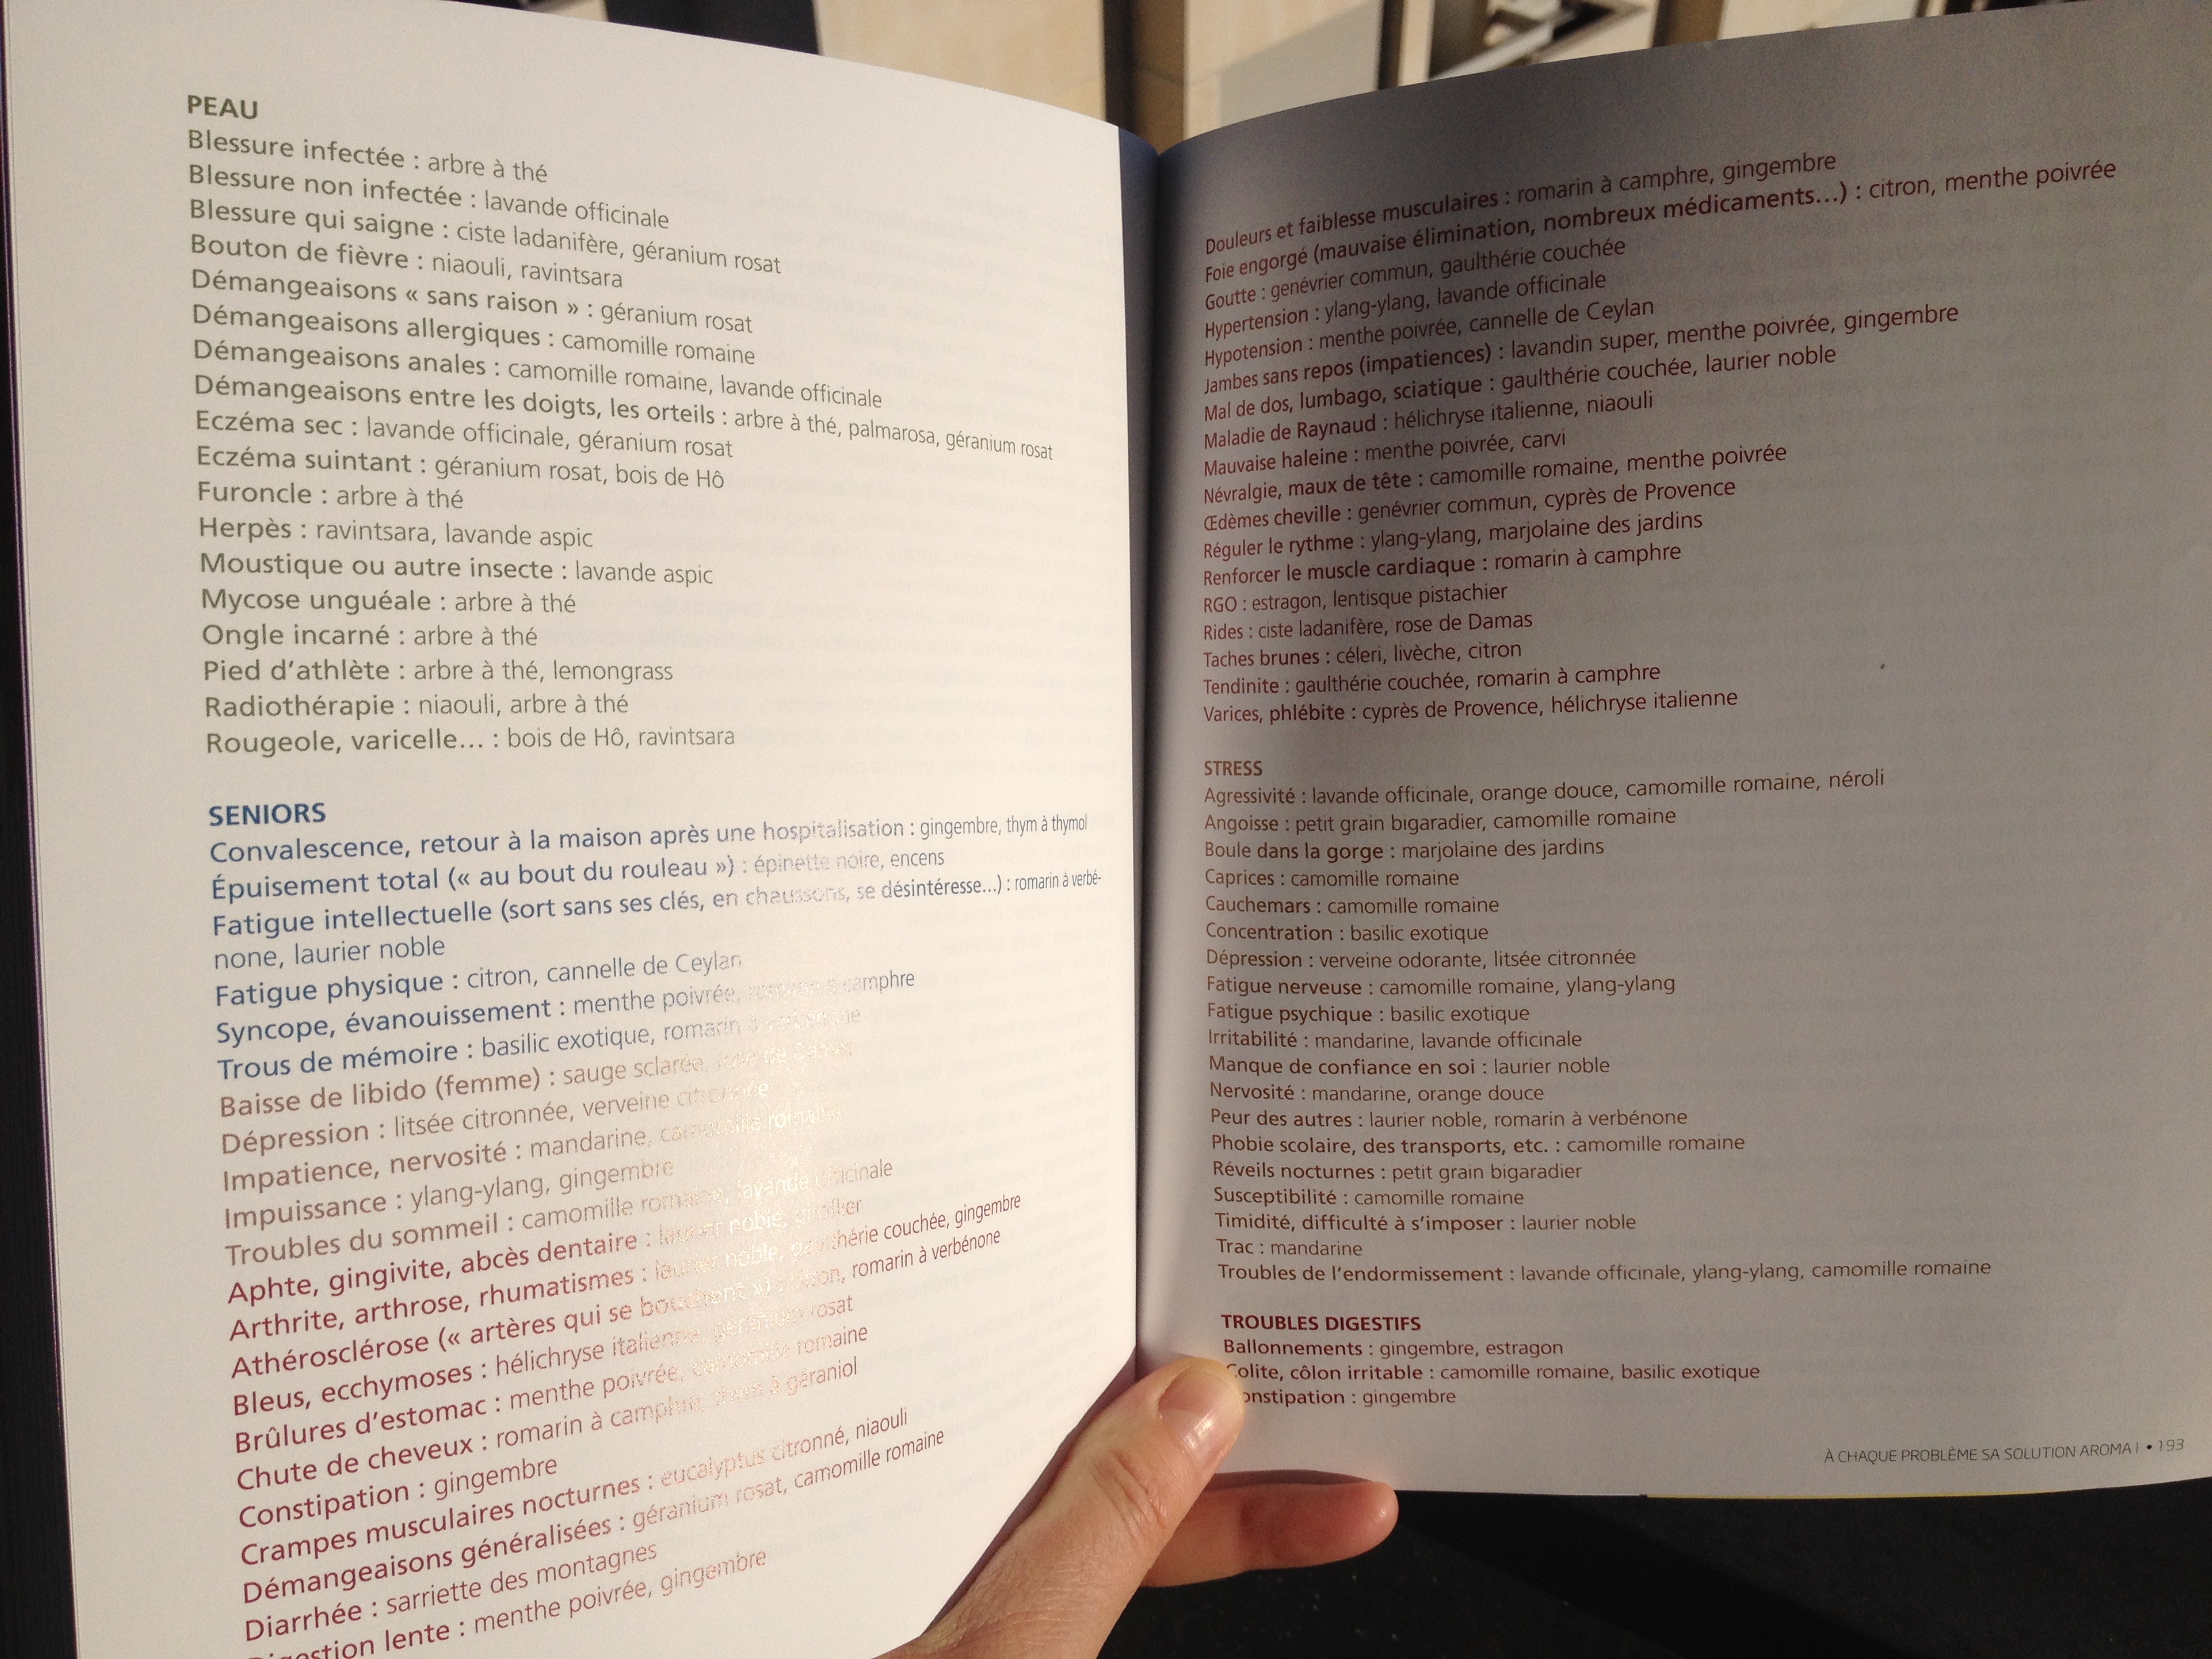 PEAU
Blessure infectée : arbre à thé
Blessure non infectée : lavande officinale
Blessure qui saigne : ciste ladanifère, géranium rosat
Bouton de fièvre : niaouli, ravintsara
Démangeaisons « sans raison » : géranium rosat
Démangeaisons allergiques : camomille romaine
Démangeaisons anales : camomille romaine, lavande officinale
Démangeaisons entre les doigts, les orteils : arbre à thé, palmarosa, géranium rosat
Eczéma sec : lavande officinale, géranium rosat
Eczéma suintant : géranium rosat, bois de Hô
Furoncle : arbre à thé
Herpès : ravintsara, lavande aspic
Moustique ou autre insecte : lavande aspic
Mycose unguéale : arbre à thé
Ongle incarné : arbre à thé
Pied d'athlète : arbre à thé, lemongrass
Radiothérapie : niaouli, arbre à thé
Rougeole, varicelle... : bois de Hô, ravintsara
SENIORS
Convalescence, retour à la maison après une hospitalisation : gingembre, thym à thymol
Épuisement total (« au bout du rouleau ») : épinette noire, encens
Fatigue intellectuelle (sort sans ses clés, en chaussons, se désintéresse...) : romarin à verbé-
none, laurier noble
Fatigue physique : citron, cannelle de Ceylan
Syncope, évanouissement : menthe poivrée, romarin à camphre
Trous de mémoire : basilic exotique, romarin à
Baisse de libido (femme) : sauge sclarée,
Dépression : litsée citronnée, verveine citronnée
Impatience, nervosité : mandarine, camomille romaine
Impuissance : ylang-ylang, gingembre
Troubles du sommeil : camomille romaine, lavande officinale
Aphte, gingivite, abcès dentaire : laurier noble, giroflier
Arthrite, arthrose, rhumatismes : laurier noble, gaulthérie couchée, gingembre
Athérosclérose (« artères qui se bouchent ») : citron, romarin à verbénone
Bleus, ecchymoses : hélichryse italienne, géranium rosat
Brûlures d'estomac : menthe poivrée, camomille romaine
Chute de cheveux : romarin à camphre, thym à géraniol
Constipation : gingembre
Crampes musculaires nocturnes : eucalyptus citronné, niaouli
Démangeaisons généralisées : géranium rosat, camomille romaine
Diarrhée : sarriette des montagnes
Digestion lente : menthe poivrée, gingembre
Douleurs et faiblesse musculaires : romarin à camphre, gingembre
Foie engorgé (mauvaise élimination, nombreux médicaments...) : citron, menthe poivrée
Goutte : genévrier commun, gaulthérie couchée
Hypertension : ylang-ylang, lavande officinale
Hypotension : menthe poivrée, cannelle de Ceylan
Jambes sans repos (impatiences) : lavandin super, menthe poivrée, gingembre
Mal de dos, lumbago, sciatique : gaulthérie couchée, laurier noble
Maladie de Raynaud : hélichryse italienne, niaouli
Mauvaise haleine : menthe poivrée, carvi
Névralgie, maux de tête : camomille romaine, menthe poivrée
Œdèmes cheville : genévrier commun, cyprès de Provence
Réguler le rythme : ylang-ylang, marjolaine des jardins
Renforcer le muscle cardiaque : romarin à camphre
RGO : estragon, lentisque pistachier
Rides : ciste ladanifère, rose de Damas
Taches brunes : céleri, livèche, citron
Tendinite : gaulthérie couchée, romarin à camphre
Varices, phlébite : cyprès de Provence, hélichryse italienne
STRESS
Agressivité : lavande officinale, orange douce, camomille romaine, néroli
Angoisse : petit grain bigaradier, camomille romaine
Boule dans la gorge : marjolaine des jardins
Caprices : camomille romaine
Cauchemars : camomille romaine
Concentration : basilic exotique
Dépression : verveine odorante, litsée citronnée
Fatigue nerveuse : camomille romaine, ylang-ylang
Fatigue psychique : basilic exotique
Irritabilité : mandarine, lavande officinale
Manque de confiance en soi : laurier noble
Nervosité : mandarine, orange douce
Peur des autres : laurier noble, romarin à verbénone
Phobie scolaire, des transports, etc. : camomille romaine
Réveils nocturnes : petit grain bigaradier
Susceptibilité : camomille romaine
Timidité, difficulté à s'imposer : laurier noble
Trac : mandarine
Troubles de l'endormissement : lavande officinale, ylang-ylang, camomille romaine
TROUBLES DIGESTIFS
Ballonnements : gingembre, estragon
Colite, côlon irritable : camomille romaine, basilic exotique
Constipation : gingembre
À CHAQUE PROBLÈME SA SOLUTION AROMA ! • 193